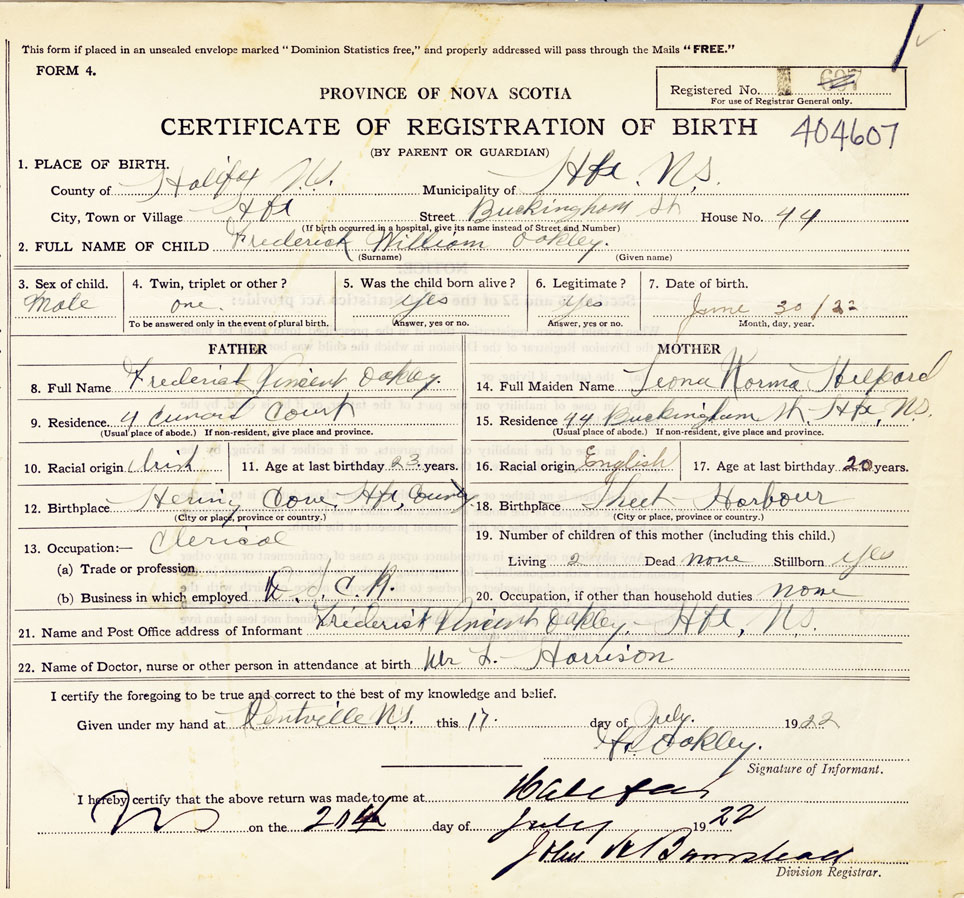 This form if placed in an unsealed envelope marked "Dominion Statistics free," and properly addressed will pass through the Mails "FREE."
FORM 4.
Registered No. 607
For use of Registrar General only.
PROVINCE OF NOVA SCOTIA
CERTIFICATE OF REGISTRATION OF BIRTH 404607
(BY PARENT OR GUARDIAN)
1. PLACE OF BIRTH.
County of Halifax N.S. Municipality of Hfx. N.S.
City, Town or Village Hfx Street Buckingham St House No. 44
(If birth occurred in a hospital, give its name instead of Street and Number)
2. FULL NAME OF CHILD Frederick William Oakley.
(Surname) (Given name)
3. Sex of child. 4. Twin, triplet or other? 5. Was the child born alive? 6. Legitimate? 7. Date of birth.
Male one. Yes Yes June 30/22
To be answered only in the event of plural birth. Answer, yes or no. Answer, yes or no. Month, day, year.
FATHER MOTHER
8. Full Name Frederick Vincent Oakley. 14. Full Maiden Name Leona Norma
9. Residence. Court 15. Residence 44 Buckingham St. Hfx, N.S.
(Usual place of abode.) If non-resident, give place and province. (Usual place of abode.) If non-resident, give place and province.
10. Racial origin Irish 11. Age at last birthday 23 years. 16. Racial origin English 17. Age at last birthday 20 years.
12. Birthplace Herring Cove Hfx, County 18. Birthplace Sheet Harbour
(City or place, province or country.) (City or place, province or country.)
13. Occupation:— Clerical 19. Number of children of this mother (including this child.)
(a) Trade or profession Living 2 Dead none Stillborn yes
(b) Business in which employed 20. Occupation, if other than household duties none
21. Name and Post Office address of Informant Frederick Vincent Oakley, Hfx, N.S.
22. Name of Doctor, nurse or other person in attendance at birth Harrison
I certify the foregoing to be true and correct to the best of my knowledge and belief.
Given under my hand at Kentville N.S. this 17. day of July. 1922
Oakley.
Signature of Informant.
I hereby certify that the above return was made to me at Halifax
on the 20th day of July 1922
John
Division Registrar.